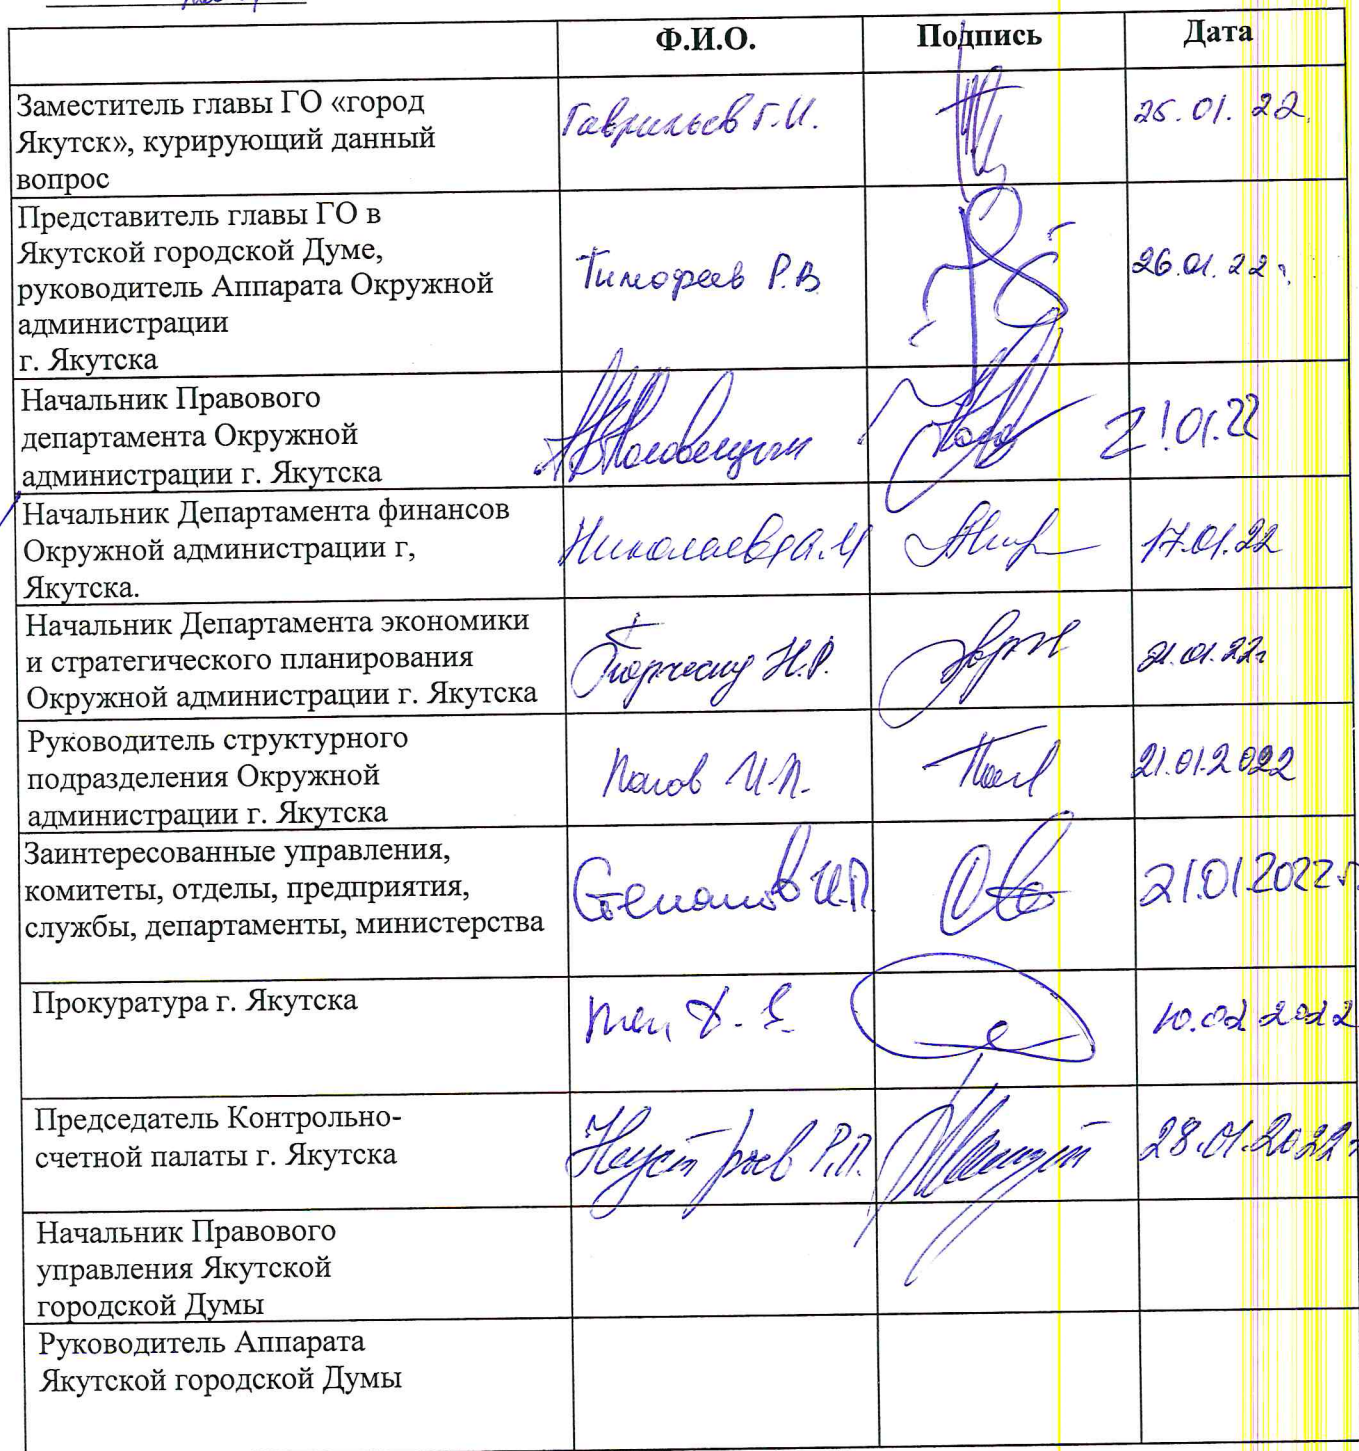 Ф.И.О. Подпись Дата
Заместитель главы ГО «город
Якутск», курирующий данный
вопрос
Гаврильев Г.И.
25.01.22
Представитель главы ГО в
Якутской городской Думе,
руководитель Аппарата Окружной
администрации
г. Якутска
Тимофеев Р.В
26.01.22г
Начальник Правового
департамента Окружной
администрации г. Якутска
21.01.22
Начальник Департамента финансов
Окружной администрации г,
Якутска.
Николаева А.И
17.01.22
Начальник Департамента экономики
и стратегического планирования
Окружной администрации г. Якутска
Н.Р.
21.01.22г
Руководитель структурного
подразделения Окружной
администрации г. Якутска
И.П.
21.01.2022
Заинтересованные управления,
комитеты, отделы, предприятия,
службы, департаменты, министерства
Степанов И.П.
21.01.2022г.
Прокуратура г. Якутска
10.02.2022
Председатель Контрольно-
счетной палаты г. Якутска
Неустроев Р.П.
28.01.2022г
Начальник Правового
управления Якутской
городской Думы
Руководитель Аппарата
Якутской городской Думы